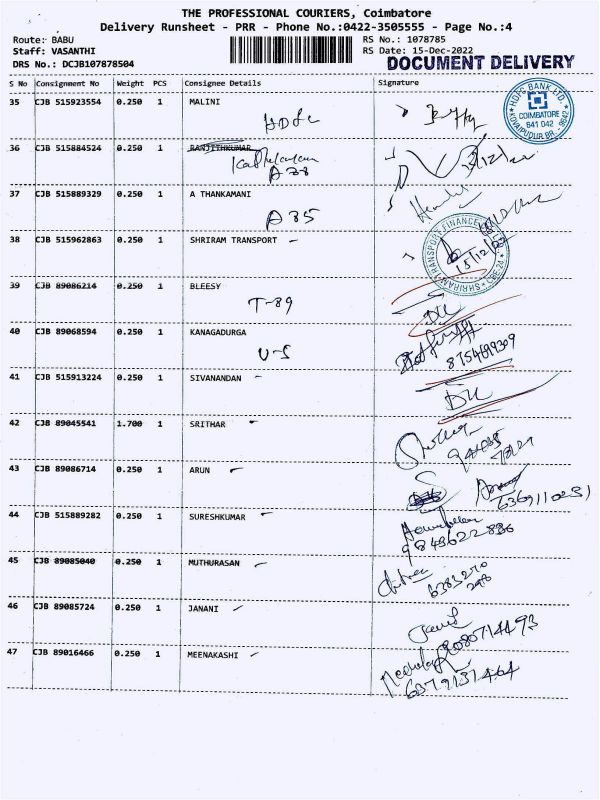 THE PROFESSIONAL COURIERS, Coimbatore
Delivery Runsheet - PRR - Phone No.:0422-3505555 - Page No.:4
Route: BABU RS No.: 1078785
Staff: VASANTHI RS Date: 15-Dec-2022
DRS No.: DCJB107878504 DOCUMENT DELIVERY
S No Consignment No Weight PCS Consignee Details Signature
35 CJB 515923554 0.250 1 MALINI
HDFC
HDFC BANK LTD.
COIMBATORE
641 042
KOVAIPUDUR BR. - 9642
36 CJB 515884524 0.250 1 RANJITHKUMAR
A 28
15/12/22
37 CJB 515889329 0.250 1 A THANKAMANI
A 35
38 CJB 515962863 0.250 1 SHRIRAM TRANSPORT
15/12/22
39 CJB 89086214 0.250 1 BLEESY
T-89
DU
40 CJB 89068594 0.250 1 KANAGADURGA
U-5
8754699309
41 CJB 515913224 0.250 1 SIVANANDAN
DU
42 CJB 89045541 1.700 1 SRITHAR
43 CJB 89086714 0.250 1 ARUN
44 CJB 515889282 0.250 1 SURESHKUMAR
9843622886
45 CJB 89085040 0.250 1 MUTHURASAN
6383270
298
46 CJB 89085724 0.250 1 JANANI
8080714493
47 CJB 89016466 0.250 1 MEENAKASHI
6379137464